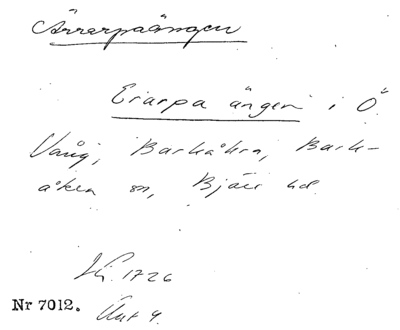 Ärrarpaängen
Erarpa ängen i Ö
Vång, Barkåkra, Bark-
åkra sn, Bjäre hd
1726
Nr 7012. Äut 4.